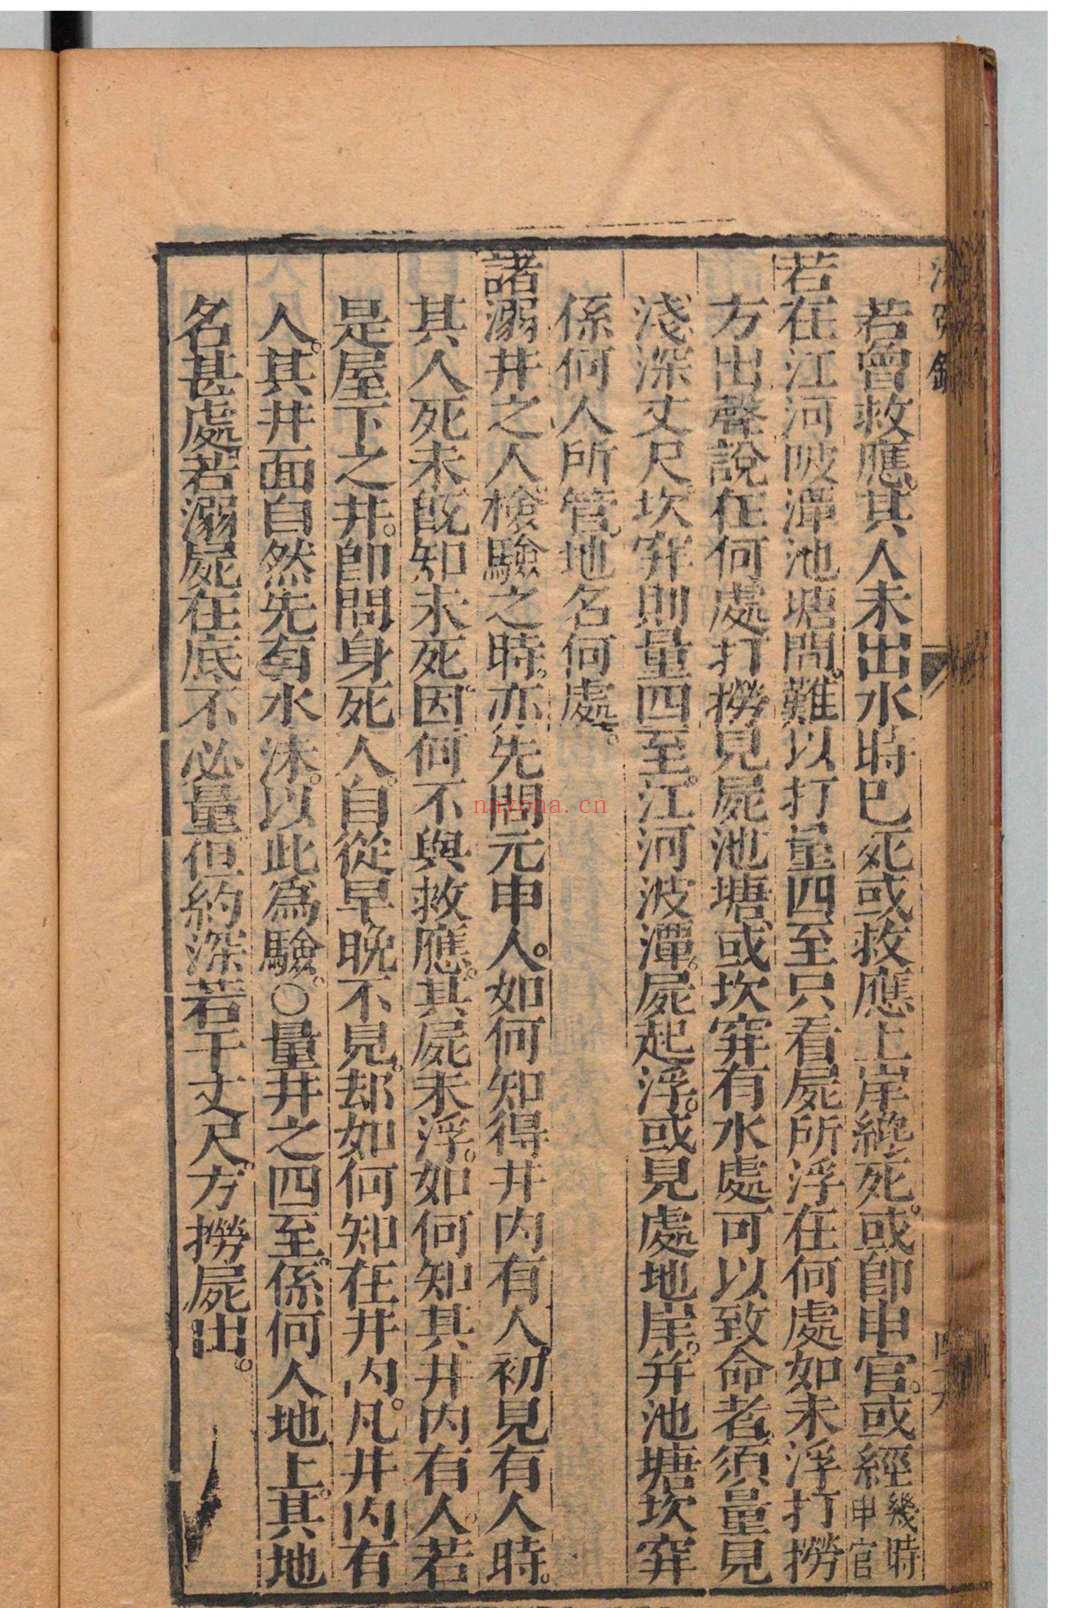 洗冤錄
若曾救應。其人未出水時已死或救應上岸纔死。或即申官。或經幾時申官
若在江河陂潭池塘間。難以打量四至只看屍所浮在何處如未浮打撈
方出聲說在何處打撈見屍池塘或坎穽有水處可以致命者須量見
淺深丈尺坎穽則量四至。江河波潭。屍起浮。或見處地岸。并池塘坎穽
係何人所管。地名何處。
諸溺井之人檢驗之時。亦先問元申人。如何知得井內有人初見有人時。
其人死未既知未死因何不與救應。其屍未浮。如何知其井內有人。若
是屋下之井。即問身死人。自從早晚不見。却如何知在井內。凡井內有
人。其井面自然先有水沫。以此為驗。○量井之四至。係何人地上。其地
名甚處。若溺屍在底不必量但約深若干丈尺方撈屍出。
nayona.cn